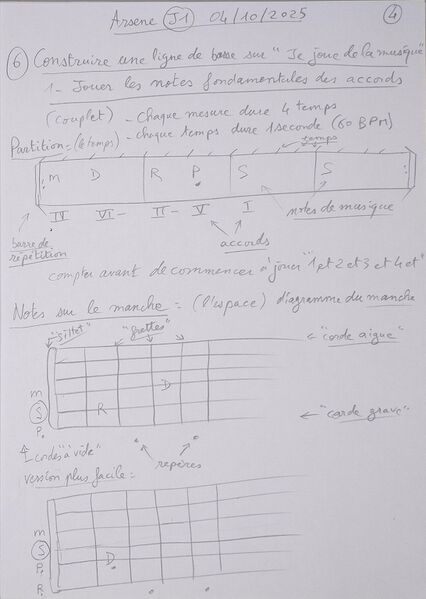 Arsene J1 04/10/2025 4
6 Construire une ligne de basse sur "Je joue de la musique"
1- Jouer les notes fondamentales des accords
(couplet) - Chaque mesure dure 4 temps
- chaque temps dure 1 seconde (60 BPM)
Partition = (le temps)
temps
m D R P S S
IV VI- II- V I
notes de musique
barre de répétition
accords
compter avant de commencer à jouer "1 et 2 et 3 et 4 et"
Notes sur le manche = (l'espace) diagramme du manche
"sillet" "frettes" "corde aigue"
D
m
S R
P. "corde grave"
cordes "à vide" repères
version plus facile =
m
S
P. D
R.